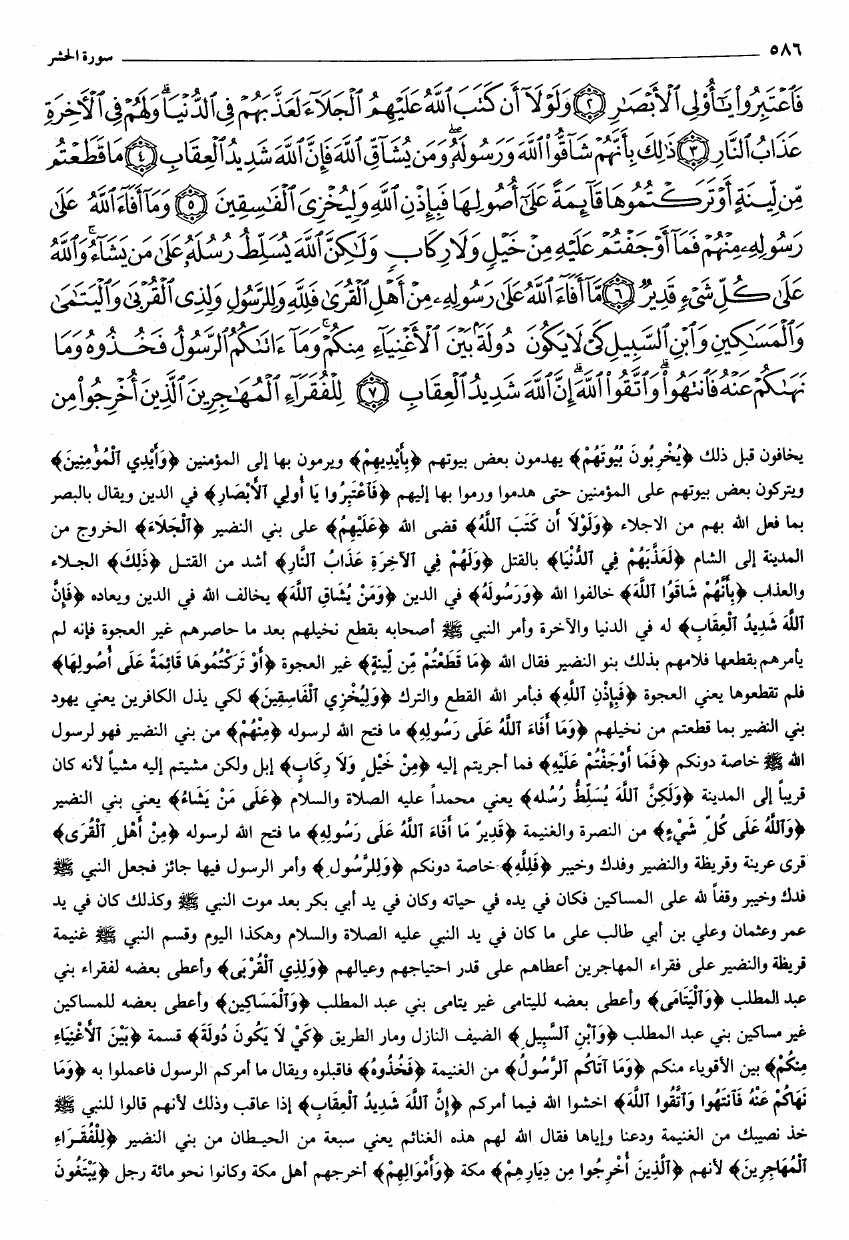 ٥٨٦ سورة الحشر
فَاعْتَبِرُوا يَا أُولِي الْأَبْصَارِ ٢ وَلَوْلَا أَن كَتَبَ اللَّهُ عَلَيْهِمُ الْجَلَاءَ لَعَذَّبَهُمْ فِي الدُّنْيَا وَلَهُمْ فِي الْآخِرَةِ
عَذَابُ النَّارِ ٣ ذَلِكَ بِأَنَّهُمْ شَاقُّوا اللَّهَ وَرَسُولَهُ وَمَن يُشَاقِّ اللَّهَ فَإِنَّ اللَّهَ شَدِيدُ الْعِقَابِ ٤ مَا قَطَعْتُم
مِّن لِّينَةٍ أَوْ تَرَكْتُمُوهَا قَائِمَةً عَلَى أُصُولِهَا فَبِإِذْنِ اللَّهِ وَلِيُخْزِيَ الْفَاسِقِينَ ٥ وَمَا أَفَاءَ اللَّهُ عَلَى
رَسُولِهِ مِنْهُمْ فَمَا أَوْجَفْتُمْ عَلَيْهِ مِنْ خَيْلٍ وَلَا رِكَابٍ وَلَكِنَّ اللَّهَ يُسَلِّطُ رُسُلَهُ عَلَى مَن يَشَاءُ وَاللَّهُ
عَلَى كُلِّ شَيْءٍ قَدِيرٌ ٦ مَّا أَفَاءَ اللَّهُ عَلَى رَسُولِهِ مِنْ أَهْلِ الْقُرَى فَلِلَّهِ وَلِلرَّسُولِ وَلِذِي الْقُرْبَى وَالْيَتَامَى
وَالْمَسَاكِينِ وَابْنِ السَّبِيلِ كَيْ لَا يَكُونَ دُولَةً بَيْنَ الْأَغْنِيَاءِ مِنكُمْ وَمَا آتَاكُمُ الرَّسُولُ فَخُذُوهُ وَمَا
نَهَاكُمْ عَنْهُ فَانتَهُوا وَاتَّقُوا اللَّهَ إِنَّ اللَّهَ شَدِيدُ الْعِقَابِ ٧ لِلْفُقَرَاءِ الْمُهَاجِرِينَ الَّذِينَ أُخْرِجُوا مِن
يخافون قبل ذلك ﴿يُخْرِبُونَ بُيُوتَهُمْ﴾ يهدمون بعض بيوتهم ﴿بِأَيْدِيهِمْ﴾ ويرمون بها إلى المؤمنين ﴿وَأَيْدِي الْمُؤْمِنِينَ﴾
ويتركون بعض بيوتهم على المؤمنين حتى هدموا ورموا بها إليهم ﴿فَاعْتَبِرُوا يَا أُولِي الْأَبْصَارِ﴾ في الدين ويقال بالبصر
بما فعل الله بهم من الاجلاء ﴿وَلَوْلَا أَن كَتَبَ اللَّهُ﴾ قضى الله ﴿عَلَيْهِمُ﴾ على بني النضير ﴿الْجَلَاءَ﴾ الخروج من
المدينة إلى الشام ﴿لَعَذَّبَهُمْ فِي الدُّنْيَا﴾ بالقتل ﴿وَلَهُمْ فِي الآخِرَةِ عَذَابُ النَّارِ﴾ أشد من القتل ﴿ذَلِكَ﴾ الجلاء
والعذاب ﴿بِأَنَّهُمْ شَاقُوا اللَّهَ﴾ خالفوا الله ﴿وَرَسُولَهُ﴾ في الدين ﴿وَمَنْ يُشَاقِ اللَّهَ﴾ يخالف الله في الدين ويعاده ﴿فَإِنَّ
اللَّهَ شَدِيدُ الْعِقَابِ﴾ له في الدنيا والآخرة وأمر النبي ﷺ أصحابه بقطع نخيلهم بعد ما حاصرهم غير العجوة فإنه لم
يأمرهم بقطعها فلامهم بذلك بنو النضير فقال الله ﴿مَا قَطَعْتُمْ مِّن لِينَةٍ﴾ غير العجوة ﴿أَوْ تَرَكْتُمُوهَا قَائِمَةً عَلَى أُصُولِهَا﴾
فلم تقطعوها يعني العجوة ﴿فَبِإِذْنِ اللَّهِ﴾ فبأمر الله القطع والترك ﴿وَلِيُخْزِي الْفَاسِقِينَ﴾ لكي يذل الكافرين يعني يهود
بني النضير بما قطعتم من نخيلهم ﴿وَمَا أَفَاءَ اللَّهُ عَلَى رَسُولِهِ﴾ ما فتح الله لرسوله ﴿مِنْهُمْ﴾ من بني النضير فهو لرسول
الله ﷺ خاصة دونكم ﴿فَمَا أَوْجَفْتُمْ عَلَيْهِ﴾ فما أجريتم إليه ﴿مِنْ خَيْلٍ وَلَا رِكَابٍ﴾ إبل ولكن مشيتم إليه مشياً لأنه كان
قريباً إلى المدينة ﴿وَلَكِنَّ اللَّهَ يُسَلِّطُ رُسُله﴾ يعني محمداً عليه الصلاة والسلام ﴿عَلَى مَنْ يَشَاءُ﴾ يعني بني النضير
﴿وَاللَّهُ عَلَى كُلِّ شَيْءٍ﴾ من النصرة والغنيمة ﴿قَدِيرٌ مَا أَفَاءَ اللَّهُ عَلَى رَسُولِهِ﴾ ما فتح الله لرسوله ﴿مِنْ أَهْلِ الْقُرَى﴾
قرى عرينة وقريظة والنضير وفدك وخيبر ﴿فَلِلَّهِ﴾ خاصة دونكم ﴿وَلِلرَّسُولِ﴾ وأمر الرسول فيها جائز فجعل النبي ﷺ
فدك وخيبر وقفاً لله على المساكين فكان في يده في حياته وكان في يد أبي بكر بعد موت النبي ﷺ وكذلك كان في يد
عمر وعثمان وعلي بن أبي طالب على ما كان في يد النبي عليه الصلاة والسلام وهكذا اليوم وقسم النبي ﷺ غنيمة
قريظة والنضير على فقراء المهاجرين أعطاهم على قدر احتياجهم وعيالهم ﴿وَلِذِي الْقُرْبَى﴾ وأعطى بعضه لفقراء بني
عبد المطلب ﴿وَالْيَتَامَى﴾ وأعطى بعضه لليتامى غير يتامى بني عبد المطلب ﴿وَالْمَسَاكِينِ﴾ وأعطى بعضه للمساكين
غير مساكين بني عبد المطلب ﴿وَابْنِ السَّبِيلِ﴾ الضيف النازل ومار الطريق ﴿كَيْ لَا يَكُونَ دُولَةً﴾ قسمة ﴿بَيْنَ الْأَغْنِيَاءِ
مِنكُمْ﴾ بين الأقوياء منكم ﴿وَمَا آتَاكُم الرَّسُولُ﴾ من الغنيمة ﴿فَخُذُوهُ﴾ فاقبلوه ويقال ما أمركم الرسول فاعملوا به ﴿وَمَا
نَهَاكُمْ عَنْهُ فَانتَهُوا وَاتَّقُوا اللَّهَ﴾ اخشوا الله فيما أمركم ﴿إِنَّ اللَّهَ شَدِيدُ الْعِقَابِ﴾ إذا عاقب وذلك لأنهم قالوا للنبي ﷺ
خذ نصيبك من الغنيمة ودعنا وإياها فقال الله لهم هذه الغنائم يعني سبعة من الحيطان من بني النضير ﴿لِلْفُقَرَاءِ
الْمُهَاجِرِينَ﴾ لأنهم ﴿الَّذِينَ أُخْرِجُوا مِن دِيَارِهِمْ﴾ مكة ﴿وَأَمْوَالِهِمْ﴾ أخرجهم أهل مكة وكانوا نحو مائة رجل ﴿يَبْتَغُونَ